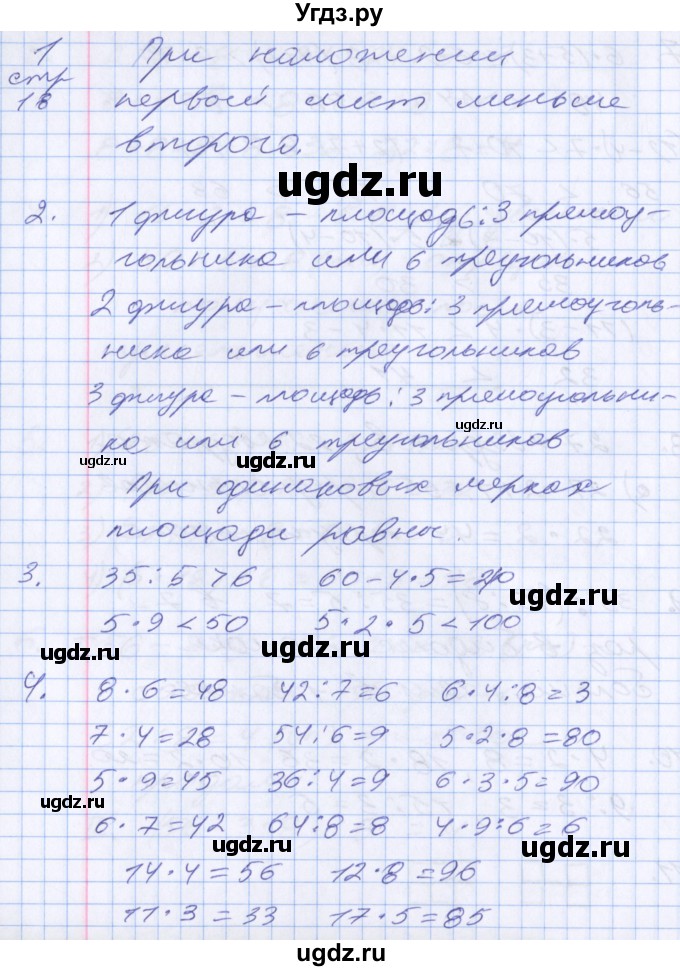 Угдз.ру
1 При наложении
стр
18 первый лист меньше
второго.
ugdz.ru
2. 1 фигура – площадь: 3 прямоу-
гольника или 6 треугольников
2 фигура – площадь: 3 прямоуголь-
ника или 6 треугольников
3 фигура – площадь: 3 прямоугольни-
ugdz.ru
ка или 6 треугольников
ugdz.ru
ugdz.ru
При одинаковых мерках
площади равны.
3. 35:5>6 60-4·5=40
ugdz.ru
5·9<50 5·2·5<100
ugdz.ru
ugdz.ru
4. 8·6=48 42:7=6 6·4:8=3
7·4=28 54:6=9 5·2·8=80
5·9=45 36:4=9 6·3·5=90
ugdz.ru
6·7=42 64:8=8 4·9:6=6
ugdz.ru
ugdz.ru
14·4=56 12·8=96
11·3=33 17·5=85
ugdz.ru